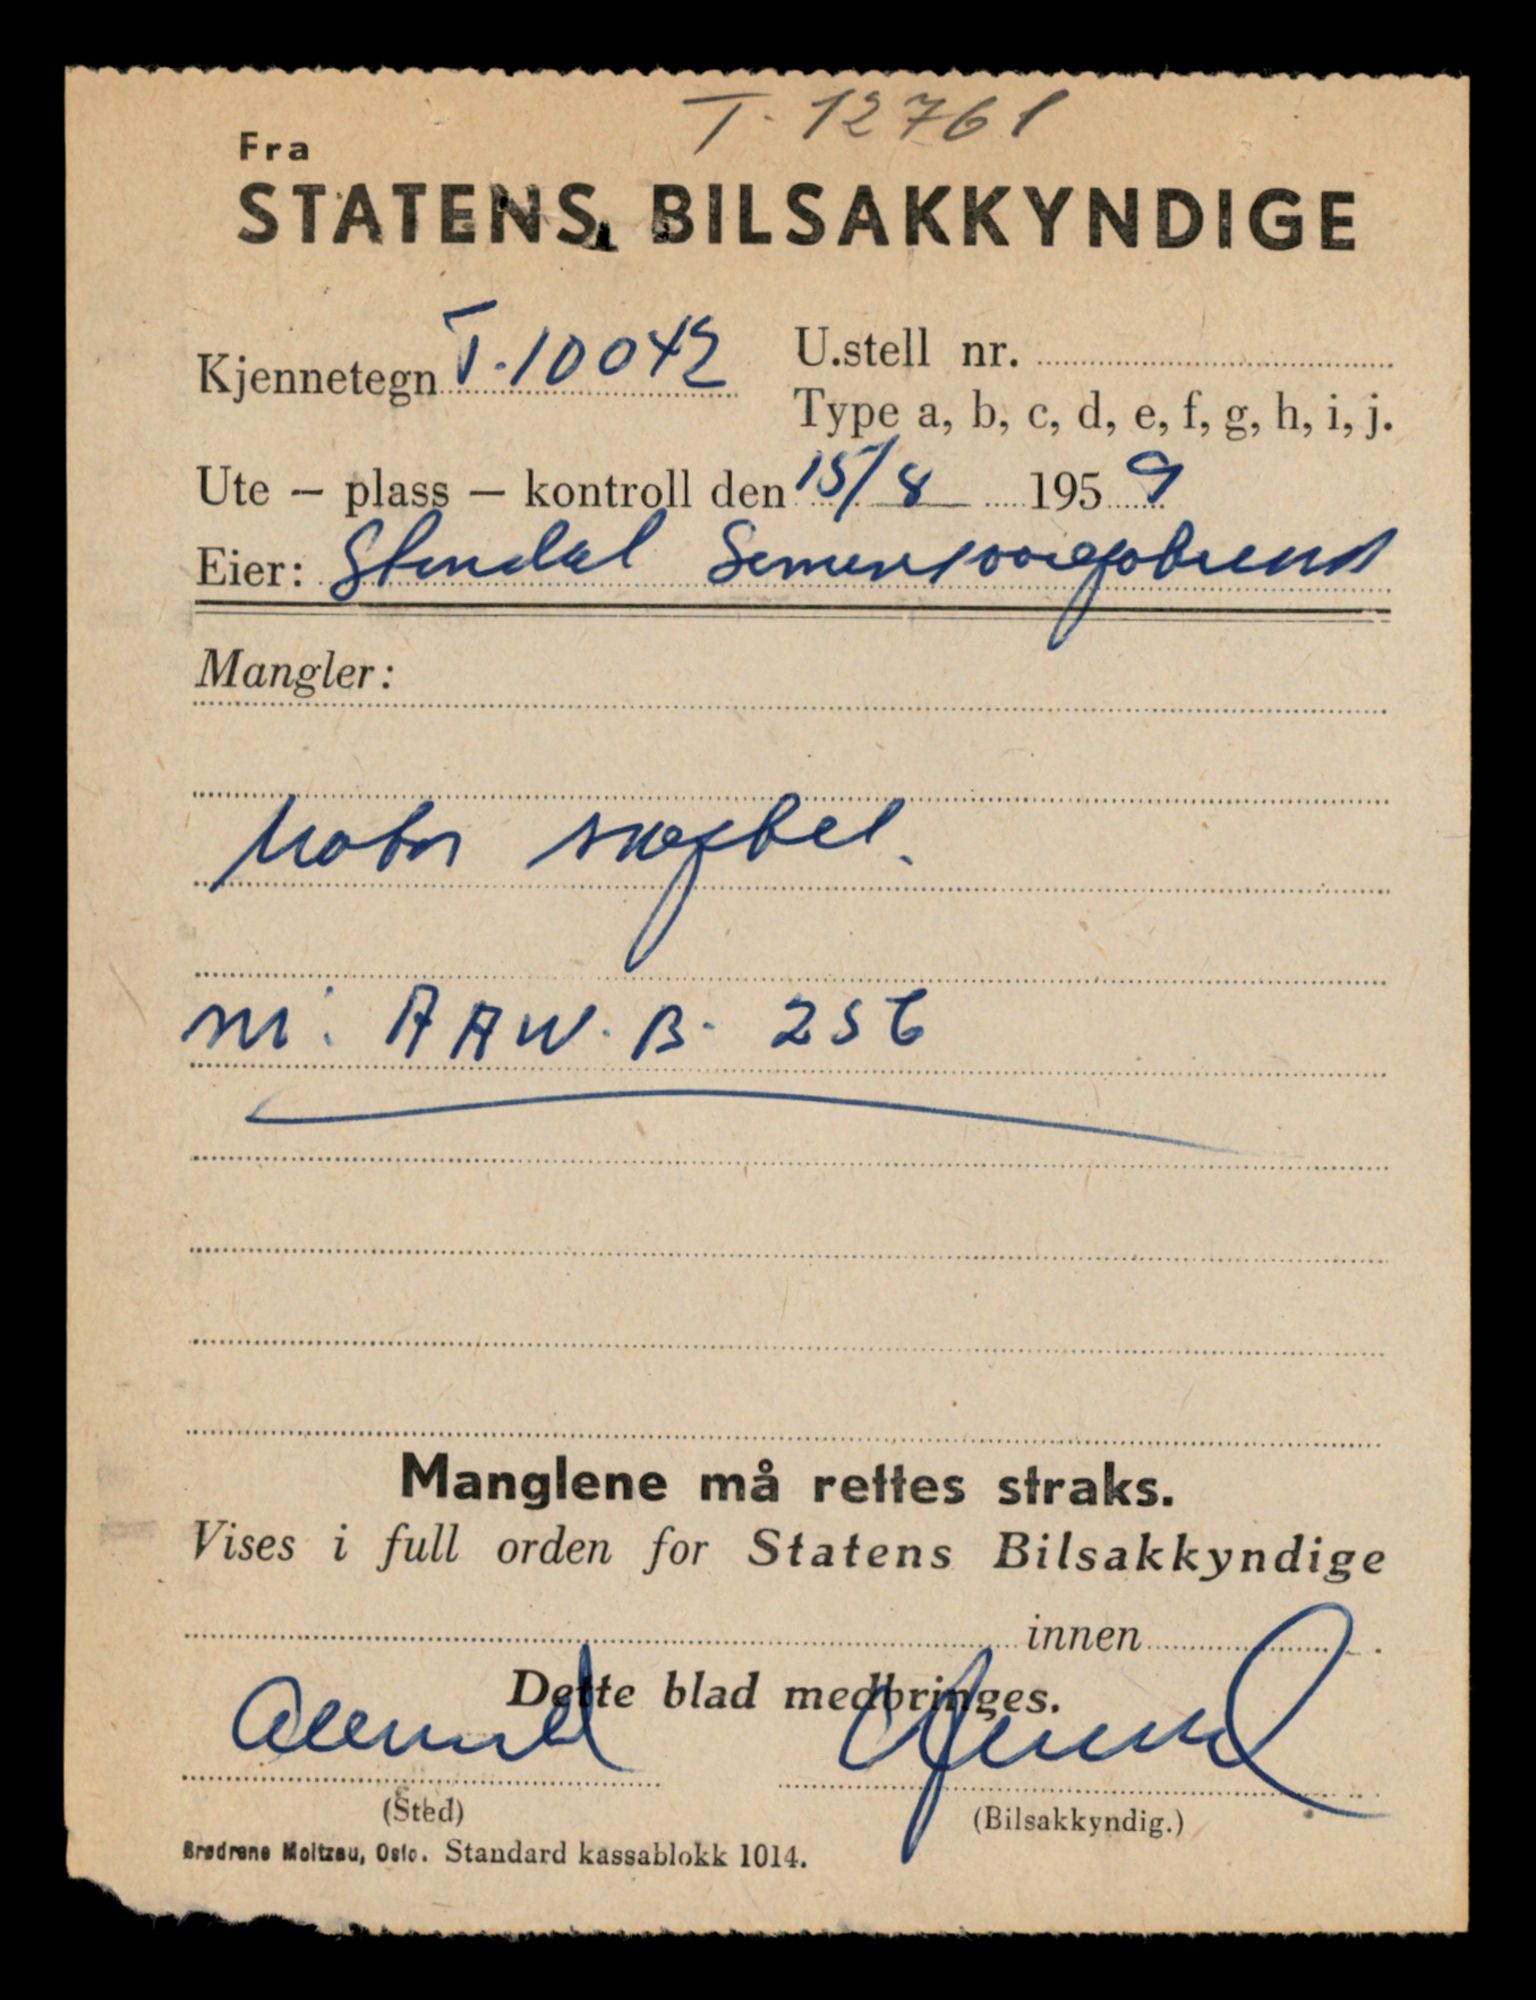 T. 12761
Fra
STATENS BILSAKKYNDIGE
Kjennetegn T. 10042 U.stell nr.
Type a, b, c, d, e, f, g, h, i, j.
Ute – plass – kontroll den 15/8 1959
Eier: Stendal
Mangler:
Motor
nr. AAW. B. 256
Manglene må rettes straks.
Vises i full orden for Statens Bilsakkyndige
innen
Dette blad medbringes.
Aalesund
(Sted) (Bilsakkyndig.)
Brødrene Moltzau, Oslo. Standard kassablokk 1014.